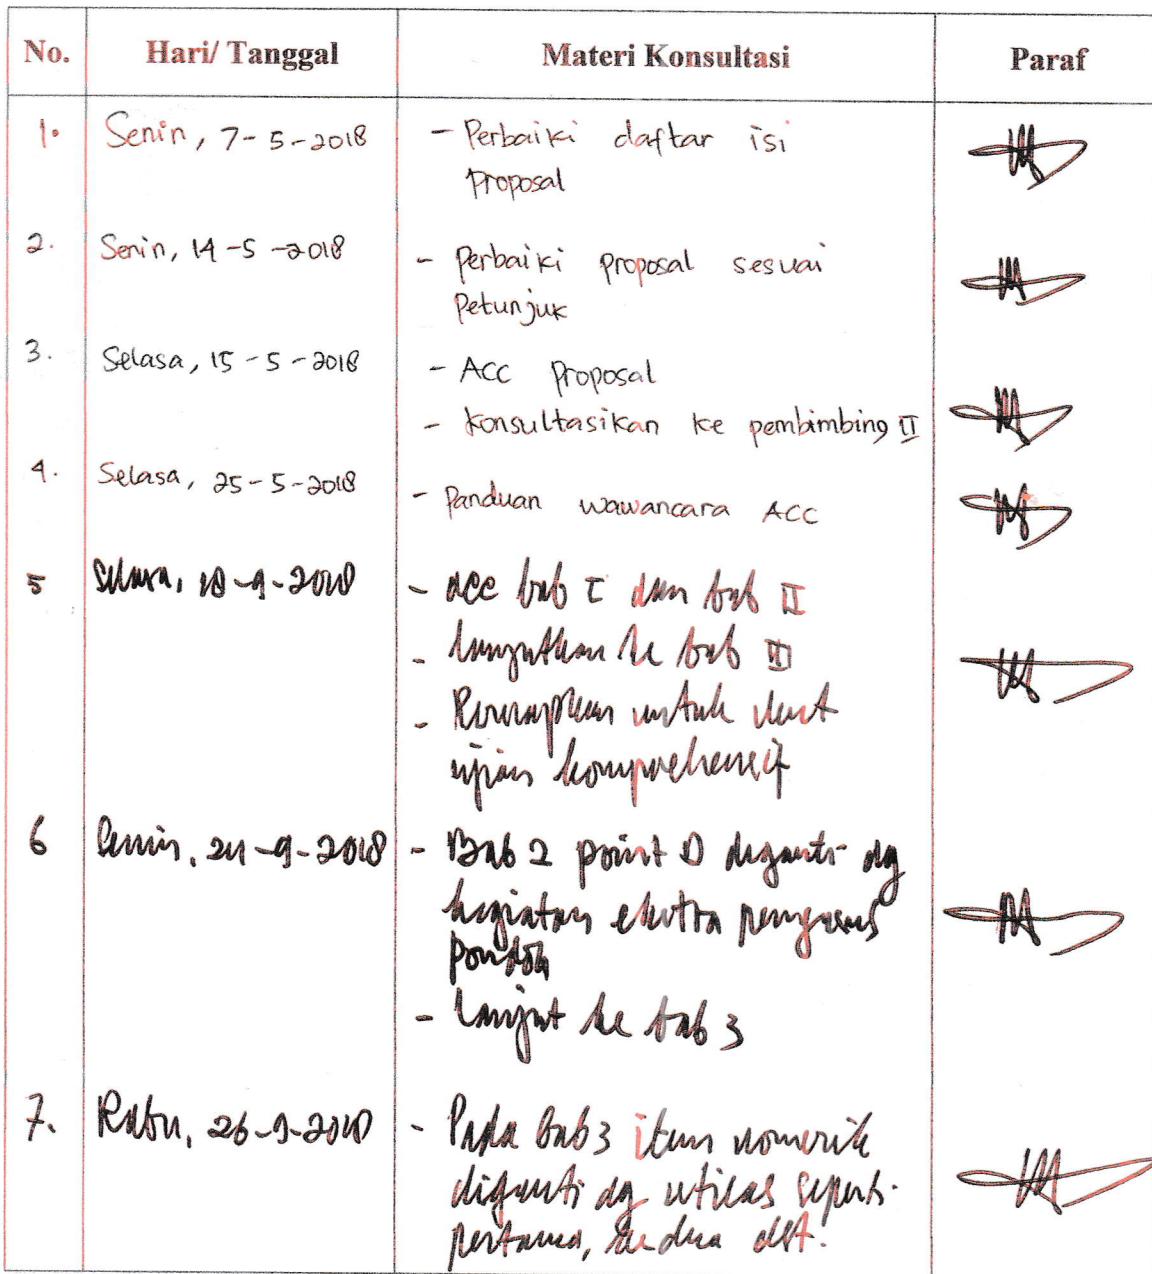 No. Hari/ Tanggal Materi Konsultasi Paraf
1. Senin, 7-5-2018 - Perbaiki daftar isi
Proposal
2. Senin, 14-5-2018 - Perbaiki proposal sesuai
Petunjuk
3. Selasa, 15-5-2018 - ACC Proposal
- Konsultasikan ke pembimbing II
4. Selasa, 25-5-2018 - Panduan wawancara ACC
5 Selasa, 18-9-2018 - acc bab I dan bab II
- Lanjutkan ke bab III
- untuk ikut
ujian komprehensif
6 Senin, 24-9-2018 - Bab 2 point D diganti dg
kegiatan ekstra pengurus
pondok
- Lanjut ke bab 3
7. Rabu, 26-9-2018 - Pada bab 3 item numerik
diganti dg seperti
pertama, kedua dst.